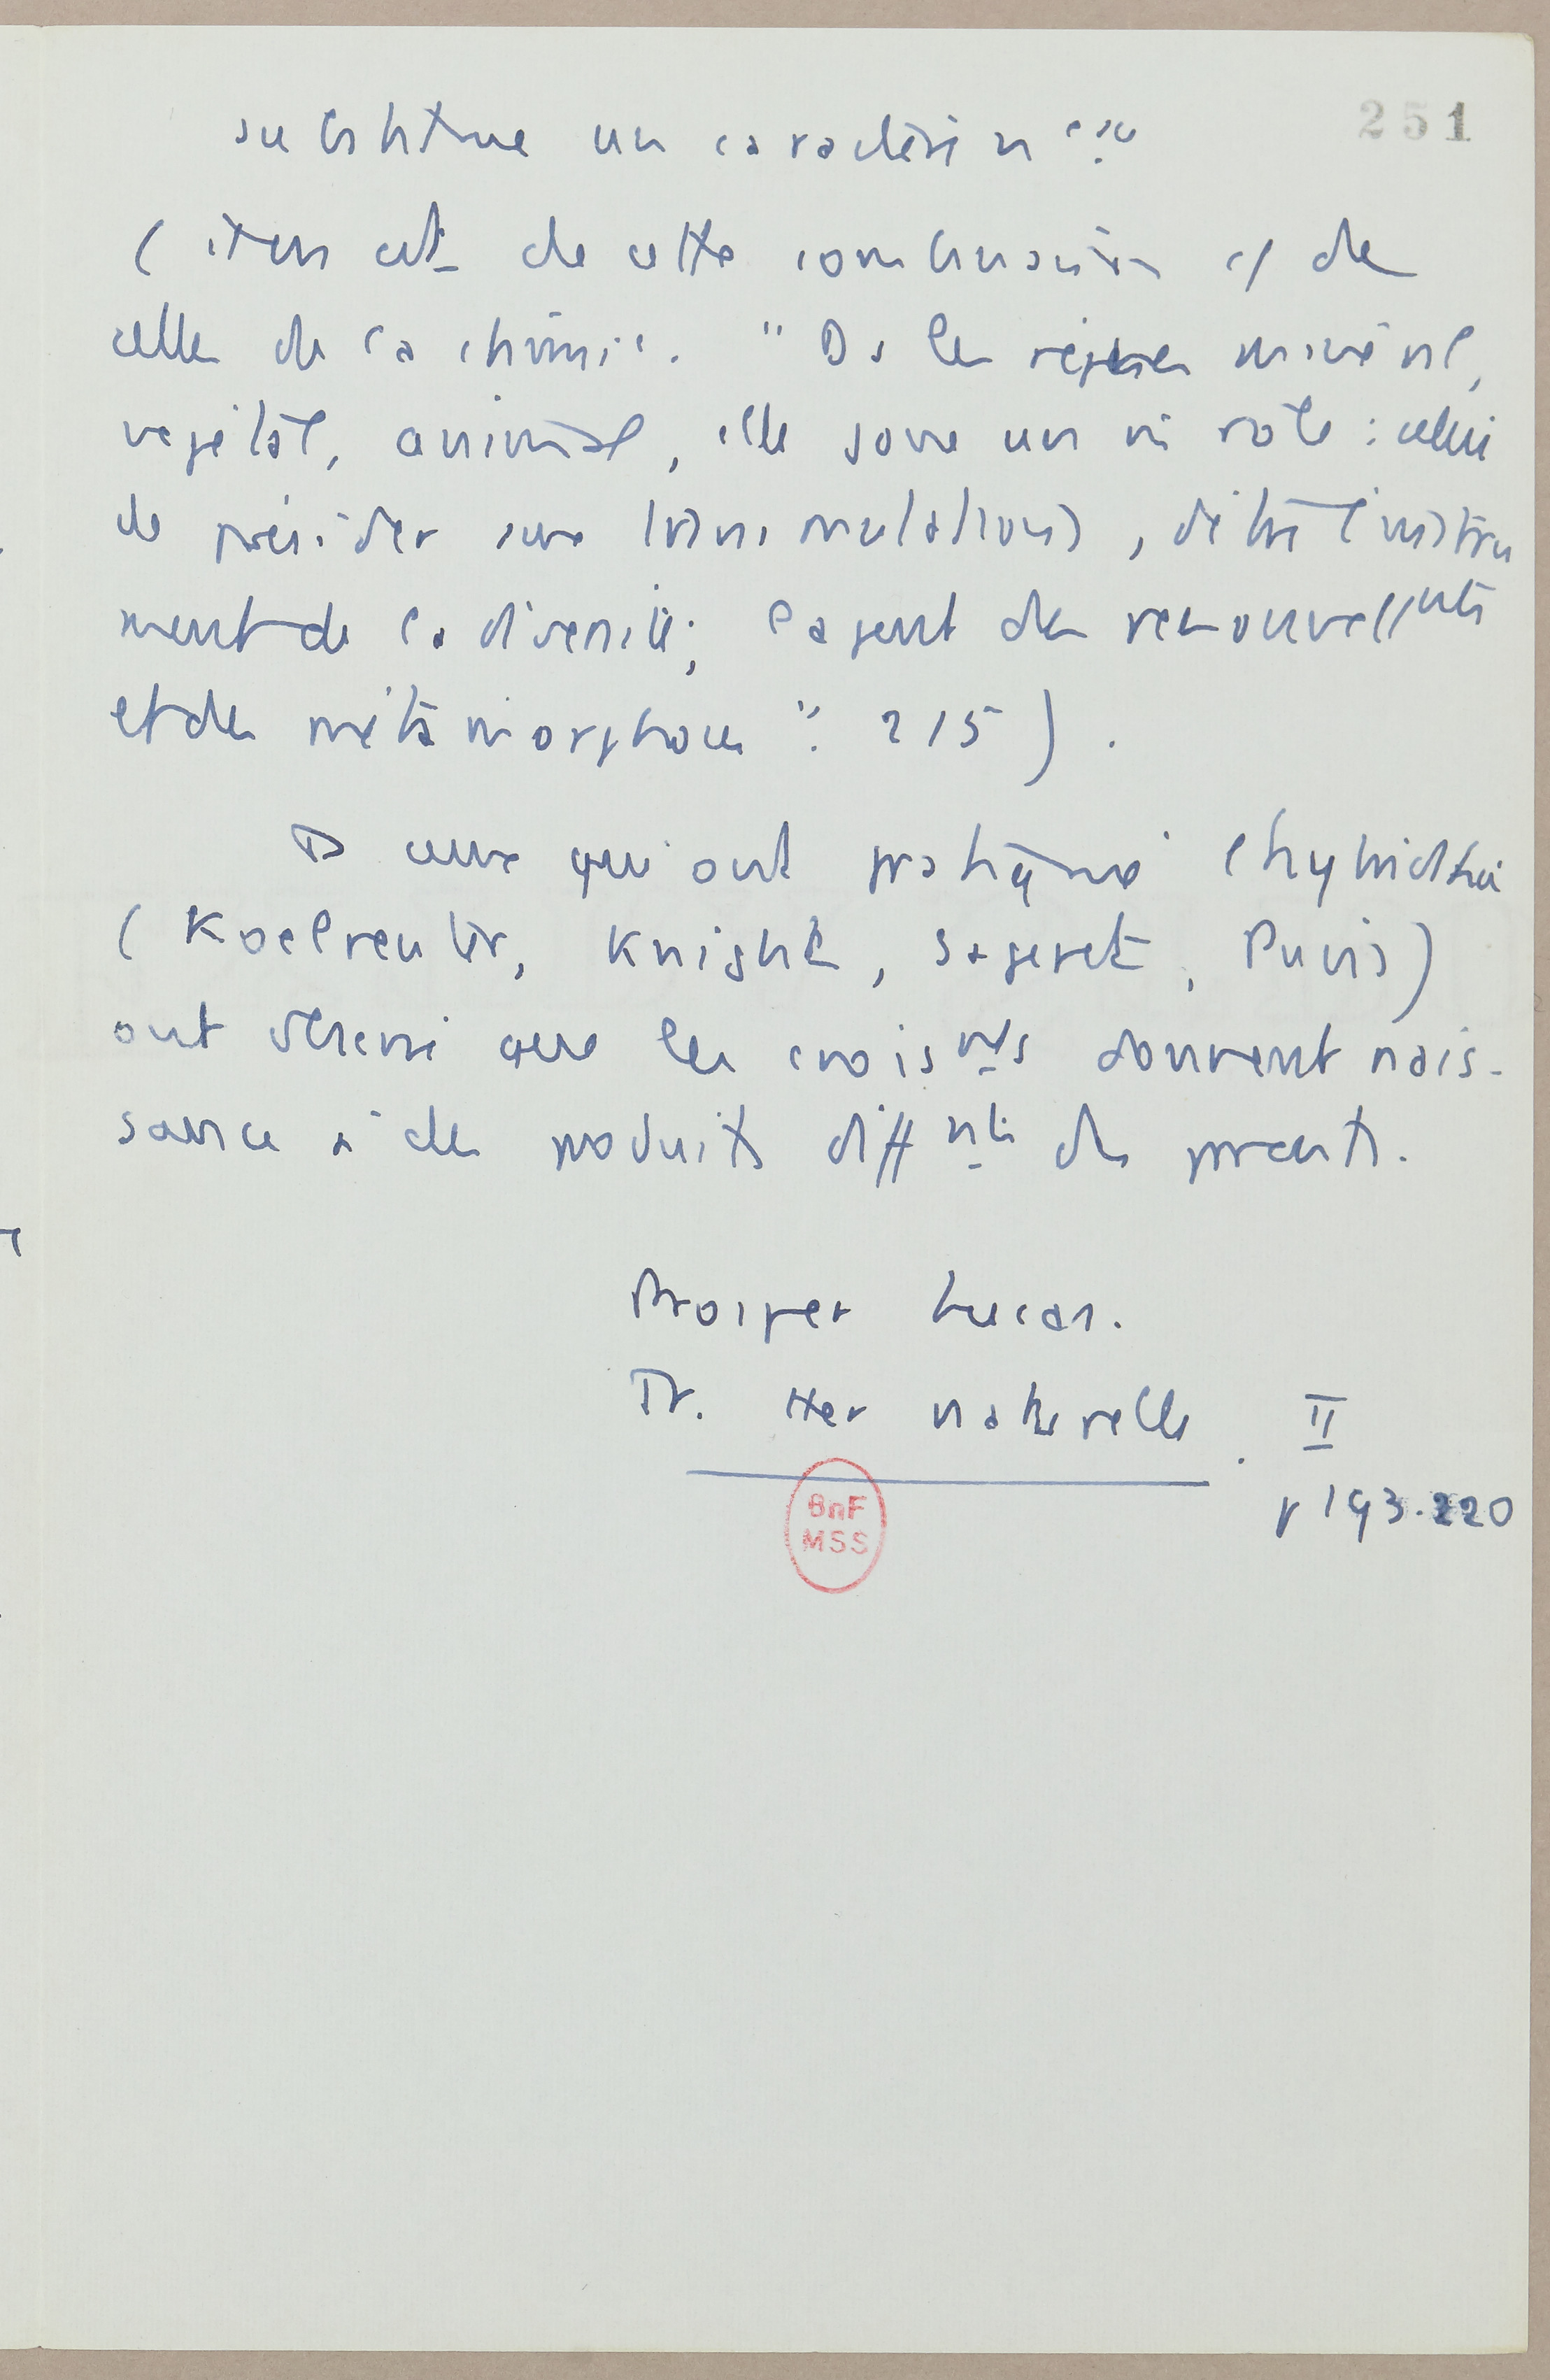 251
substitue un caractère
( de cette combinaison c/ de
celle de la chimie. "Ds les règnes minéral,
végétal, animal, elle joue un m rôle : celui
de présider aux transmutations, d'être l'instru
ment de la diversité; l'agent des renouvellmts
et des métamorphoses". 215).
Ts ceux qui ont pratiqué l'hybridité
(Koelreuter, Knight, Sageret, Puvis)
ont observé que les croismts donnent nais-
sance à des produits difft des parents.
Prosper Lucas.
Tr. Her naturelle. II
p 193.220
BnF
MSS